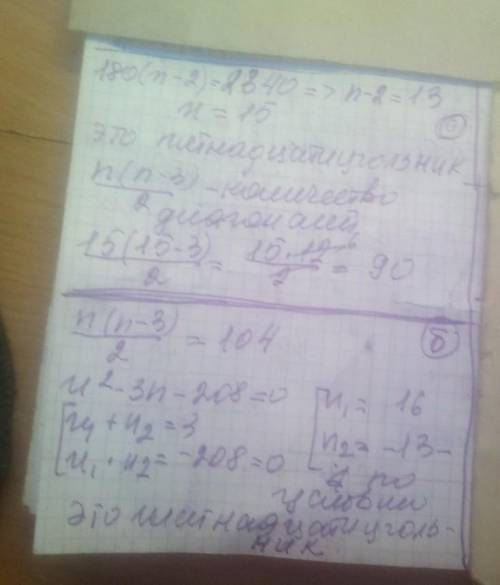 180(n-2)=2340=>n-2=13
n = 15
это пятнадцатиугольник
n(n-3)/2 - количество
диагоналей
15(15-3)/2 = 15·12⁶/2 = 90
n(n-3)/2 = 104 б
n²-3n-208=0
n₁+n₂=3 n₁= 16
n₁·n₂=-208=0 n₂=-13-
по
условию
Это шестнадцатиуголь-
ник.